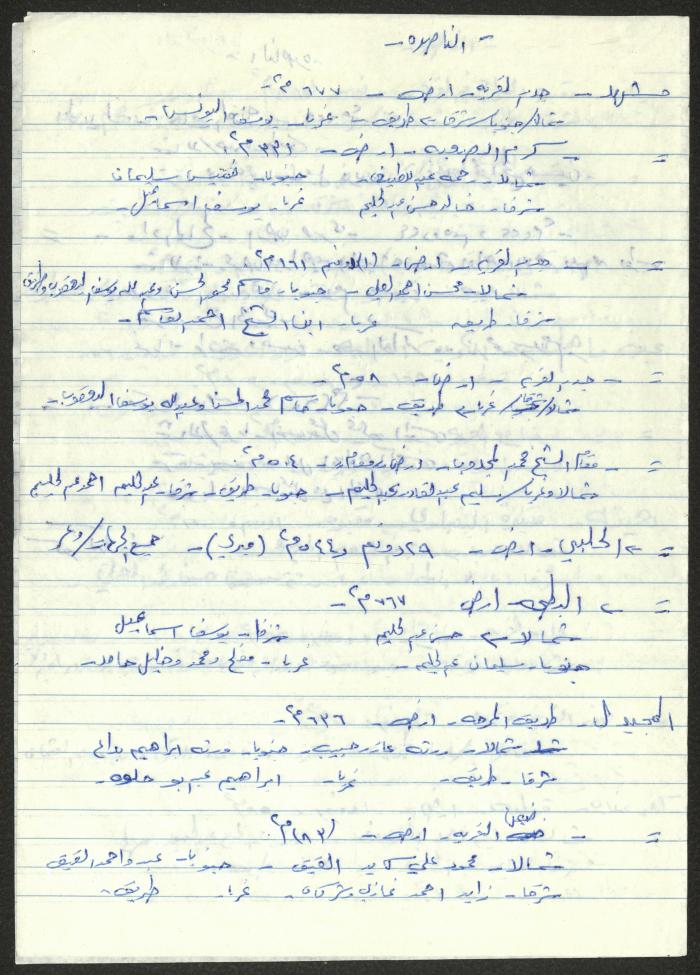 - الناصره -
مشهد - جدر القريه - ارض - ٦٧٧ م٢ -
شمالا/جنوبا/شرقا - طريق - غربا - يوسف اليونس -
= - كرم الخروبه - ارض - ٣٣١ م٢ -
شمالا - رحمه عبد اللطيف - جنوبا - سليمان
شرقا - خالد حسن عبد الحليم غربا - يوسف اسماعيل -
= - جدر القريه - ارض - (١) دونم ١٦١ م٢
شمالا - محسن احمد العلي - جنوبا - قاسم محمد الحسن وعبد الله يوسف اليعقوب وطريق
شرقا - طريق غربا - ابناء الشيخ احمد القاسم -
= - جدر القريه - ارض - ٨ م٢ -
شمالا/شرقا/غربا - طريق - جنوبا - قاسم محمد الحسن وعبد الله يوسف اليعقوب -
= - مقام الشيخ محمد - ارض ومقام - ٥١٤ م٢
شمالا وغربا - سليم عبد القادر عبد الحليم - جنوبا - طريق - شرقا - عبد الحليم احمد عبد الحليم
= - الحلبي - ارض - ٢٩ دونم و ٥٤٤ م٢ (ميري) - جميع الجهات / وعر
= - ارض ٧٦٧ م٢ -
شمالا - حسن عبد الحليم شرقا - يوسف اسماعيل
جنوبا - سليمان عبد الحليم - غربا - مفلح ومحمد وخليل حامد -
المجيدل - طريق المرجه - ارض - ٦٣٦ م٢ -
شمالا - ورثة حبيب - جنوبا - ورثة ابراهيم
شرقا - طريق - غربا - ابراهيم حلوه -
= - القريه - ارض - (٨٣) م٢
شمالا - محمود علي القيق - جنوبا - واحمد القيق
شرقا - زايد احمد وشركاه - غربا - طريق -